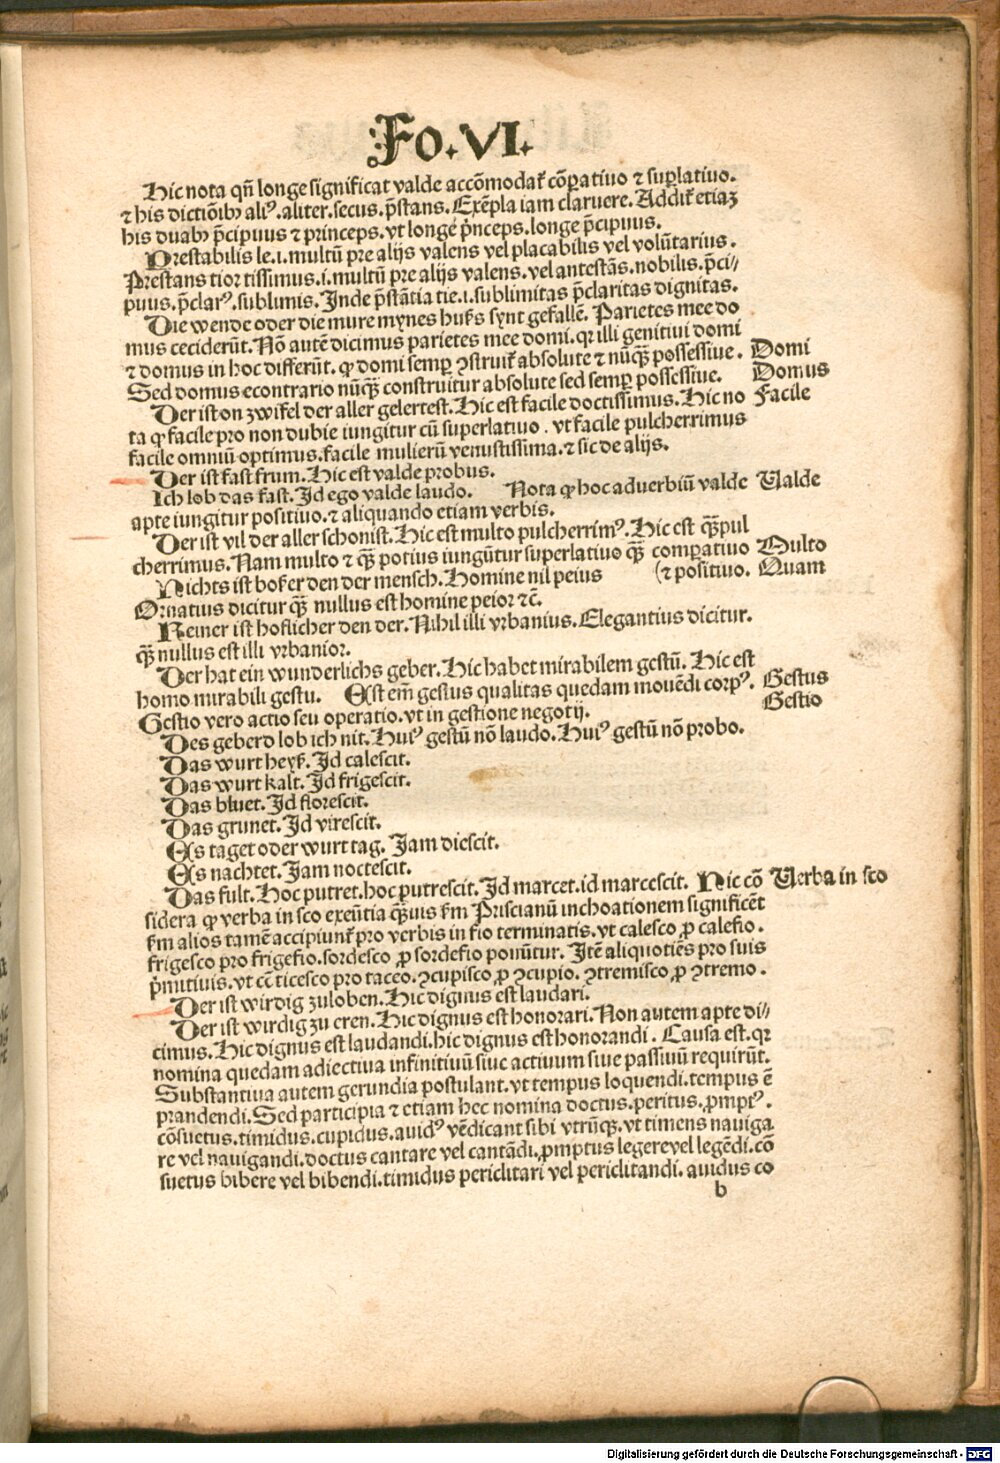 Fo.VI.
Hic nota qñ longe significat valde accõmodat᷑ cõꝑatiuo ⁊ suꝑlatiuo.
⁊ his dictiõib᷒ aliꝰ.aliter.secus.p̃stans.Exẽpla iam claruere.Addit᷑ etiaꝫ
his duab᷒ p̃cipuus ⁊ princeps.vt longe p̃nceps.longe p̃cipuus.
Prestabilis le.i.multũ pre alijs valens vel placabilis vel volũtarius.
Prestans tior tissimus.i.multũ pre alijs valens.vel antestãs.nobilis.p̃ci⸗
puus.p̃clarꝰ.sublimis.Inde p̃stãtia tie.i.sublimitas p̃claritas dignitas.
Die wende oder die mure mynes hußs synt gefallẽ. Parietes mee do
mus ceciderũt.Nõ autẽ dicimus parietes mee domi.qꝛ illi genitiui domi
⁊ domus in hoc differũt. ꝙ domi semꝑ ꝯstruit᷑ absolute ⁊ nũqꝫ possessiue. Domi
Sed domus econtrario nũqꝫ construitur absolute sed semꝑ possessiue. Domus
Der ist on zwifel der aller gelertest.Hic est facile doctissimus.Hic no Facile
ta ꝙ facile pro non dubie iungitur cũ superlatiuo. vt facile pulcherrimus
facile omniũ optimus.facile mulierũ venustissima.⁊ sic de alijs.
Der ist fast frum.Hic est valde probus.
Ich lob das fast.Id ego valde laudo. Nota ꝙ hoc aduerbiũ valde Valde
apte iungitur positiuo.⁊ aliquando etiam verbis.
Der ist vil der aller schonist.Hic est multo pulcherrimꝰ.Hic est qꝫpul
cherrimus.Nam multo ⁊ qꝫ potius iungũtur superlatiuo qꝫ comparatiuo Multo
Nichts ist boßer den der mensch.Homine nil peius (⁊ positiuo. Quam
Ornatius dicitur qꝫ nullus est homine peior ⁊c̃.
Keiner ist hoflicher den der.Nihil illi vrbanius.Elegantius dicitur.
qꝫ nullus est illi vrbanior.
Der hat ein wunderlichs geber.Hic habet mirabilem gestũ. Hic est
homo mirabili gestu. Est em̃ gestus qualitas quedam mouẽdi corpꝰ. Gestus
Gestio vero actio seu operatio.vt in gestione negotij. Gestio
Des geberd lob ich nit.Huiꝰ gestũ nõ laudo.Huiꝰ gestũ nõ probo.
Das wurt heyß.Id calescit.
Das wurt kalt.Id frigescit.
Das bluet.Id florescit.
Das grunet.Id virescit.
Es taget oder wurt tag. Jam diescit.
Es nachtet.Jam noctescit.
Das fult.Hoc putret.hoc putrescit.Id marcet.id marcescit. Hic cõ Verba in sco
sidera ꝙ verba in sco exeũtia qꝫuis ẜm Priscianũ inchoationem significẽt
ẜm alios tamẽ accipiunt᷑ pro verbis in fio terminatis.vt calesco ꝓ calefio.
frigesco pro frigefio.sordesco ꝓ sordefio ponũtur. Itẽ aliquotiẽs pro suis
p̃mitiuis.vt cõticesco pro taceo.ꝯcupisco ꝓ ꝯcupio. ꝯtremisco ꝓ ꝯtremo.
Der ist wirdig zuloben.Hic dignus est laudari.
Der ist wirdig zu eren.Hic dignus est honorari.Non autem apte di⸗
cimus.Hic dignus est laudandi.hic dignus est honorandi. Causa est.qꝛ
nomina quedam adiectiua infinitiuũ siue actiuum siue passiuũ requirũt.
Substantiua autem gerundia postulant.vt tempus loquendi.tempus ẽ
prandendi.Sed participia ⁊ etiam hec nomina doctus.peritus.ꝓmptꝰ.
cõsuetus.timidus.cupidus.auidꝰ vẽdicant sibi vtrũqꝫ.vt timens nauiga
re vel nauigandi.doctus cantare vel cantãdi.ꝓmptus legere vel legẽdi.cõ
suetus bibere vel bibendi.timidus periclitari vel periclitandi. auidus co
b
Digitalisierung gefördert durch die Deutsche Forschungsgemeinschaft - DFG